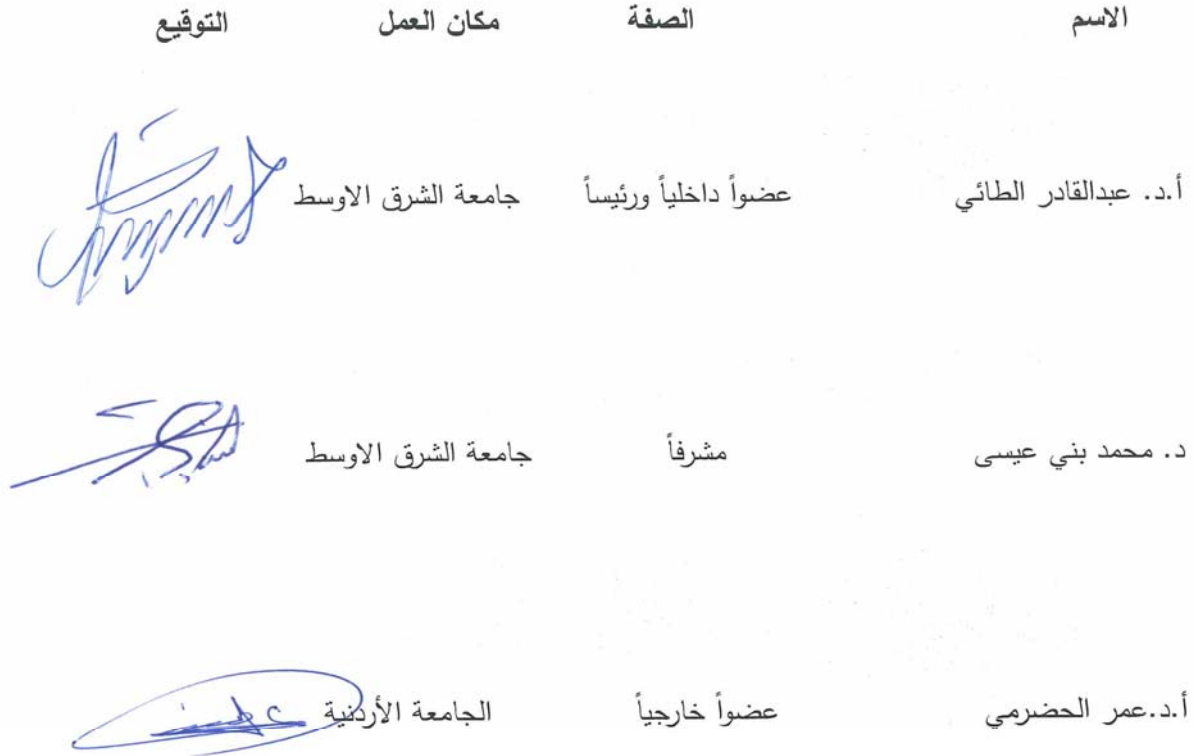 الاسم الصفة مكان العمل التوقيع
أ.د. عبدالقادر الطائي عضواً داخلياً ورئيساً جامعة الشرق الاوسط
د. محمد بني عيسى مشرفاً جامعة الشرق الاوسط
أ.د.عمر الحضرمي عضواً خارجياً الجامعة الأردنية